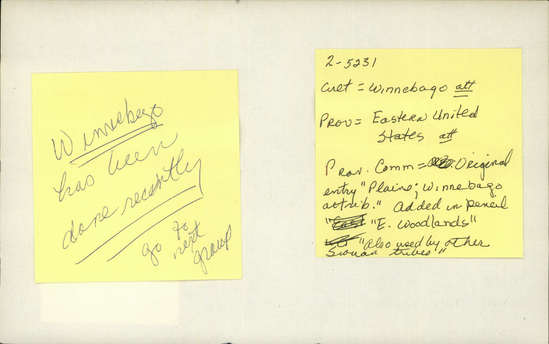 Winnebago
has been
done recently
go to
next
group
2-5231
Cult = Winnebago att
Prov = Eastern United
States att
Prov. Comm = Original
entry "Plains; Winnebago
attrib." Added in pencil
"East "E. Woodlands"
"Also used by other
Siouan tribes"